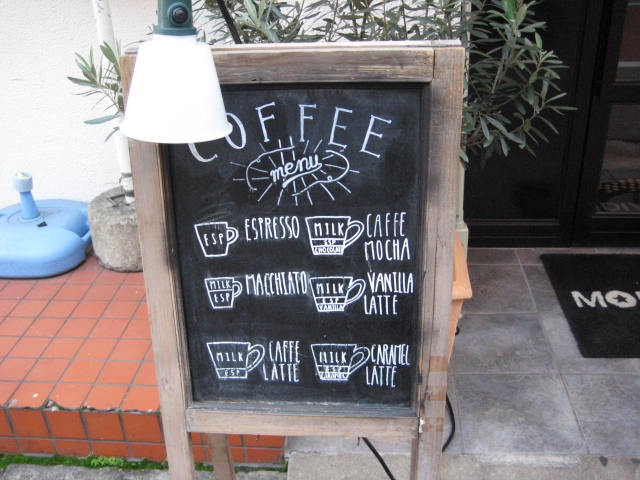 COFFEE
menu
ESP
ESPRESSO
MILK
ESP
CHOCOLAT
CAFFE
MOCHA
MILK
ESP
MACCHIATO
MILK
ESP
VANILLA
VANILLA
LATTE
MILK
ESP
CAFFE
LATTE
MILK
ESP
CARAMEL
CARAMEL
LATTE